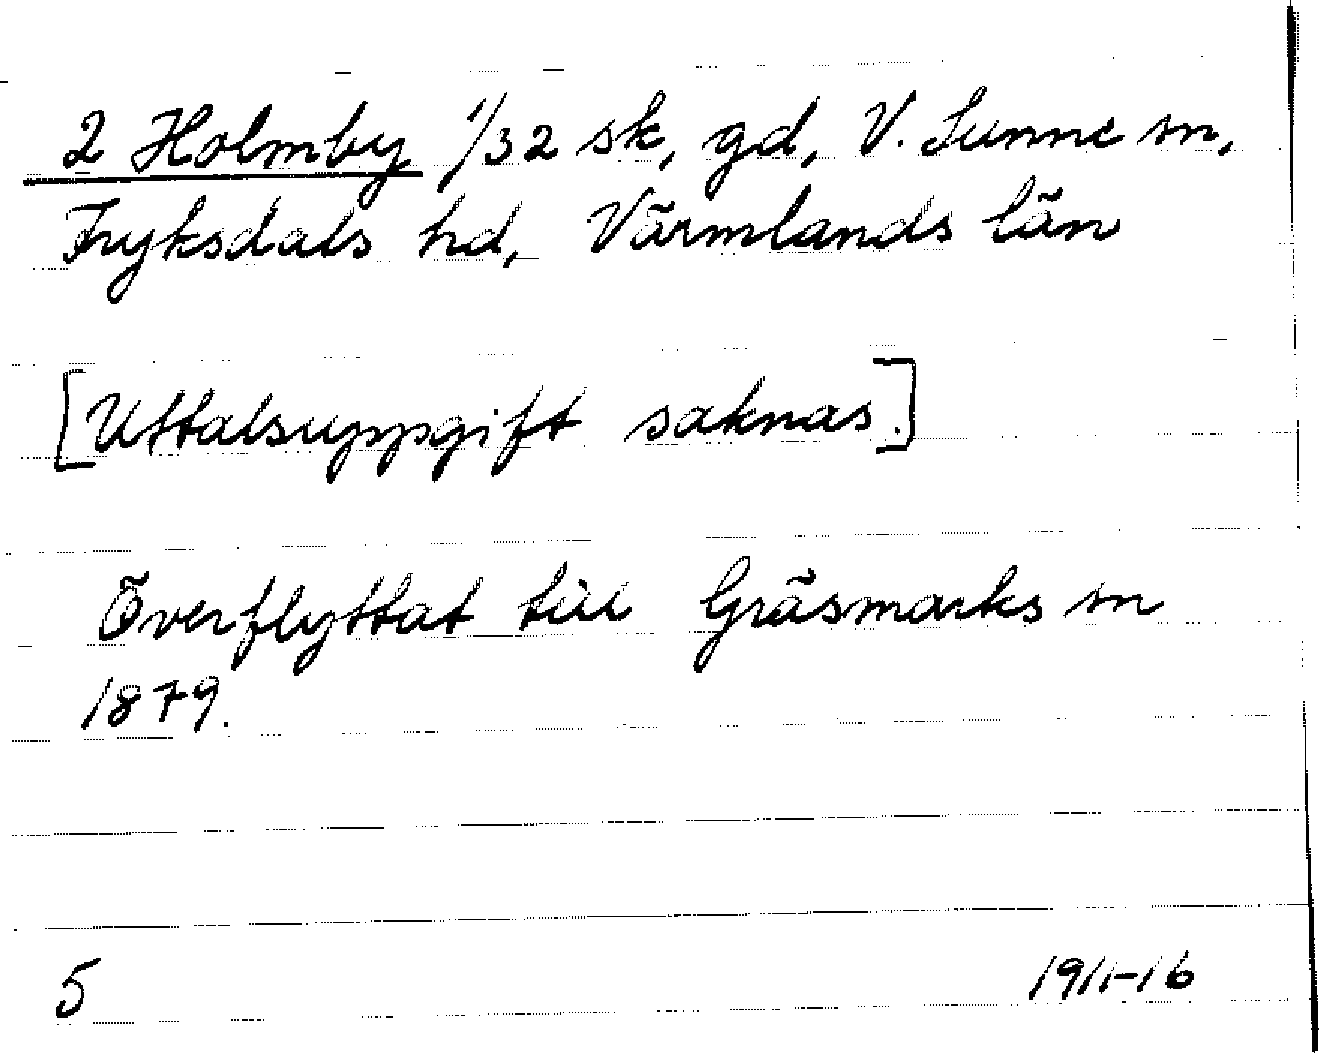 2 Holmby 1/32 sk, gd, V. Sunne sn,
Fryksdals hd, Värmlands län
[Uttalsuppgift saknas.]
Överflyttat till Gräsmarks sn
1879.
5 1911-16